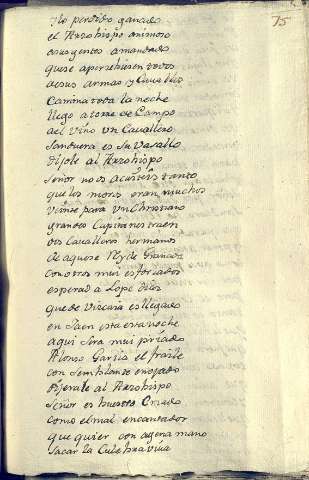 75
Mo perdido ganado
el Arzobispo animoso
a sus gentes a mandado
que se apercibiesen todos
de sus armas y Cavallos
Camina toda la noche
llego a torre de Campo
del vino vn Cavallero
Sandoera es su vasallo
dijole al Arzobispo
Señor no os acuiteis tanto
que los moros eran muchos
veinte para vn Christiano
grandes Capitanes traen
dos Cavalleros hermanos
de aquese Rey de Granada
con otros mui esforzados
esperad a Lope Dias
que de Vizcaia es llegado
en Jaen esta esta noche
aqui sera mui priado
Alonso Garcia el fraile
con Semblante enojado
Dijerale al Arzobispo
Señor es huestro Criado
como el mal encantador
que quier con agena mano
Sacar la Culebra viva